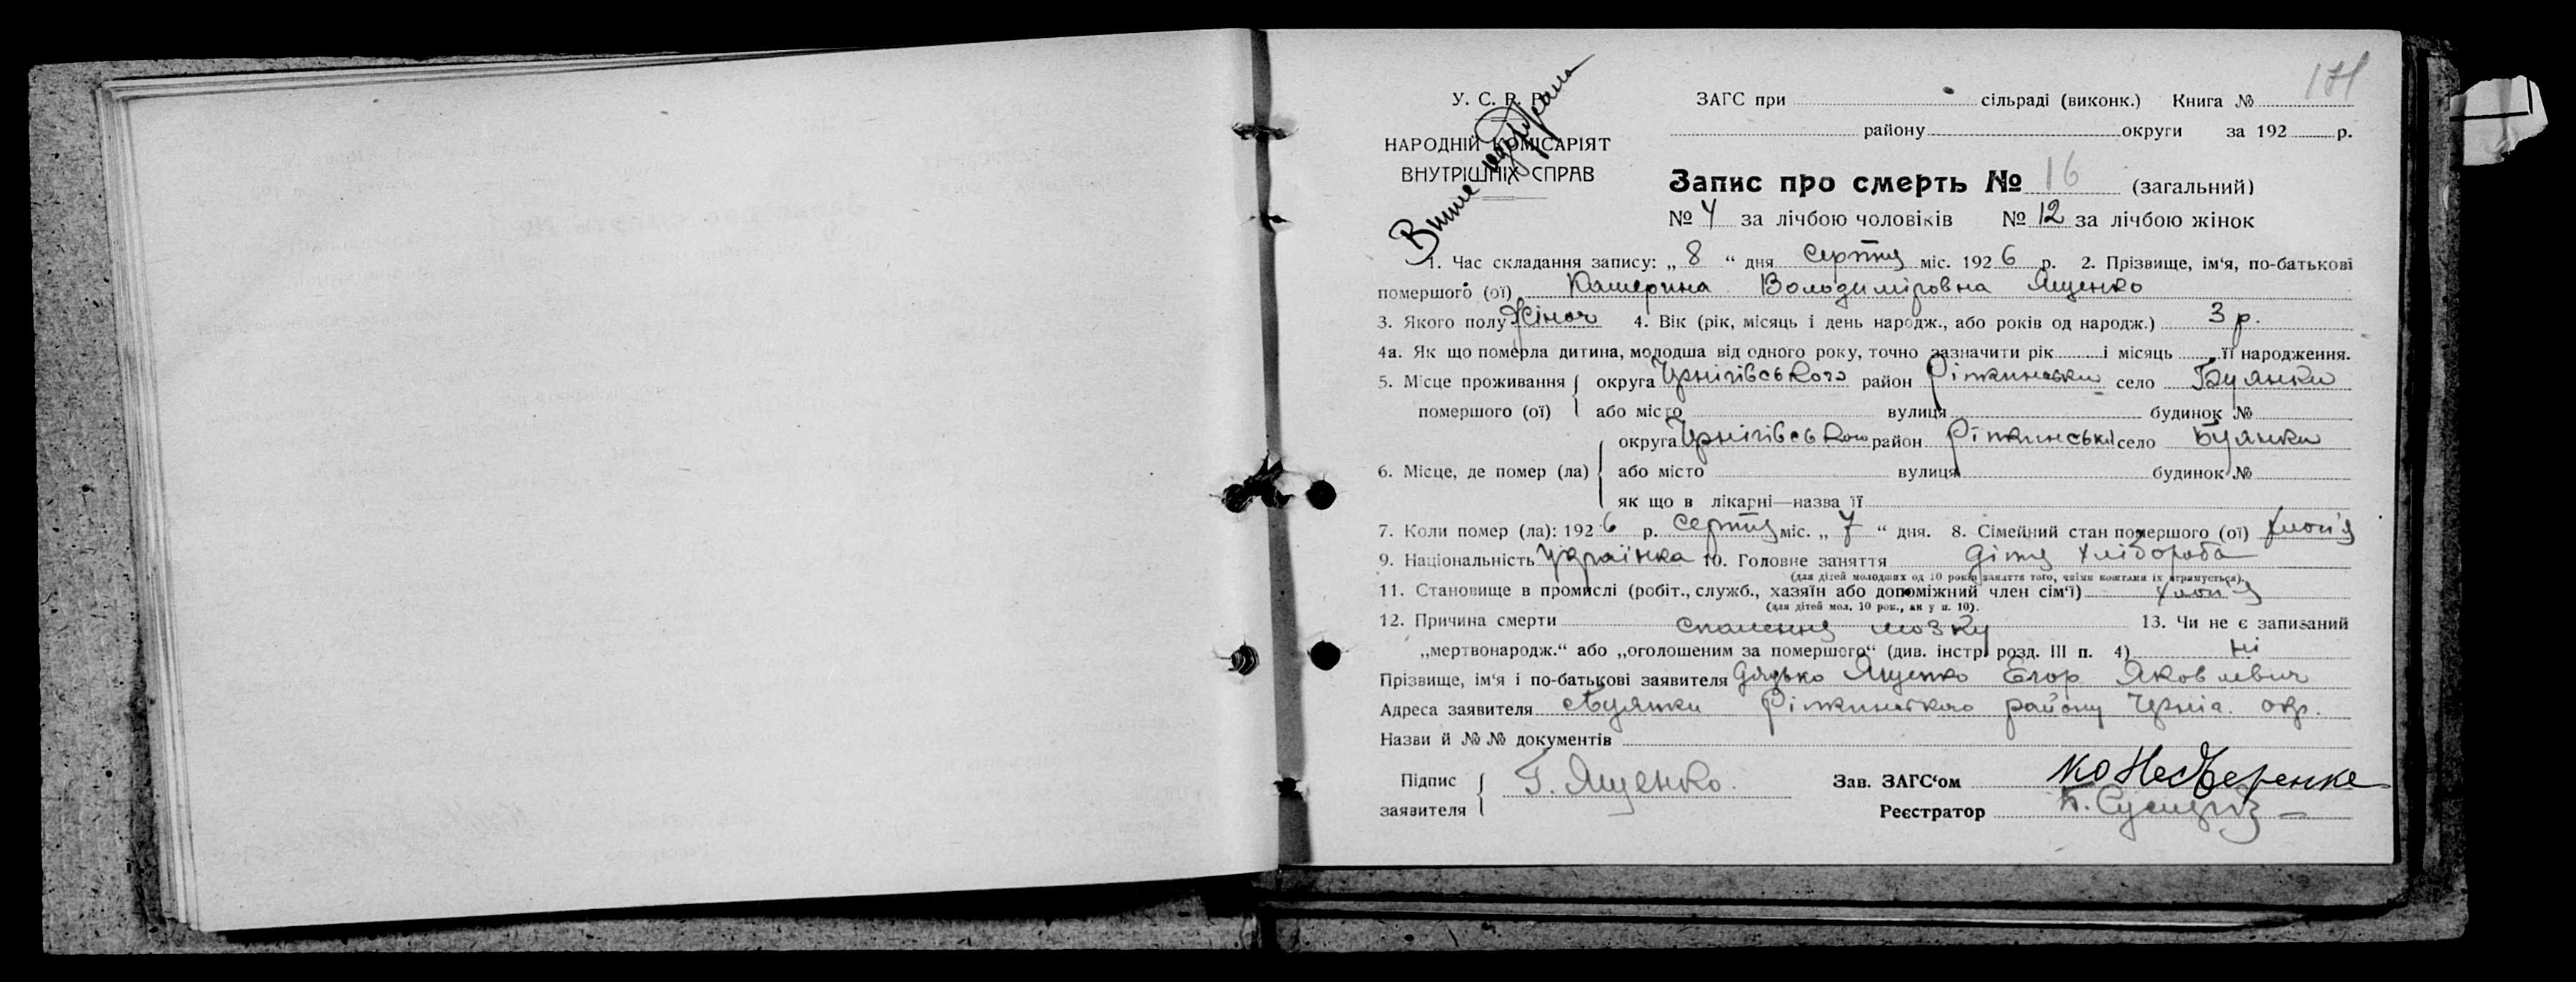 171
У. С. Р. Р.
НАРОДНІЙ КОМІСАРІЯТ
ВНУТРІШНІХ СПРАВ
Виписі
ЗАГС при сільраді (виконк.) Книга №
району округи за 192 р.
Запис про смерть № 16 (загальний)
№ 4 за лічбою чоловіків № 12 за лічбою жінок
1. Час складання запису: „ 8 “ дня серпня міс. 192 6 р. 2. Прізвище, ім‘я, по-батькові
помершого (ої) Катерина Володиміровна Ященко
3. Якого полу Жіноч 4. Вік (рік, місяць і день народж., або років од народж.) 3 р.
4а. Як що померла дитина, молодша від одного року, точно зазначити рік і місяць її народження.
5. Місце проживання округа Чернігівського район Ріпкинськи село Буянки
помершого (ої) або місто вулиця будинок №
округа Чернігівського район Ріпкинські село Буянки
6. Місце, де помер (ла) або місто вулиця будинок №
як що в лікарні—назва її
7. Коли помер (ла): 192 6 р. серпня міс. „ 7 “ дня. 8. Сімейний стан помершого (ої)
9. Національність Українка 10. Головне заняття дітя хлібороба
(для дітей молодших од 10 років заняття того, чиїми коштами їх втримується).
11. Становище в промислі (робіт., служб., хазяїн або допоміжний член сім‘ї)
(для дітей мол. 10 рок., як у п. 10).
12. Причина смерти спалення мозку 13. Чи не є записаний
„мертвонародж.“ або „оголошеним за помершого“ (див. інстр. розд. III п. 4) ні
Прізвище, ім‘я і по-батькові заявителя дядько Ященко Егор Яковлевич
Адреса заявителя Буянки Ріпкинського району Черніг. окр.
Назви й №№ документів
Підпис заявителя Г. Ященко Зав. ЗАГС‘ом
Реєстратор